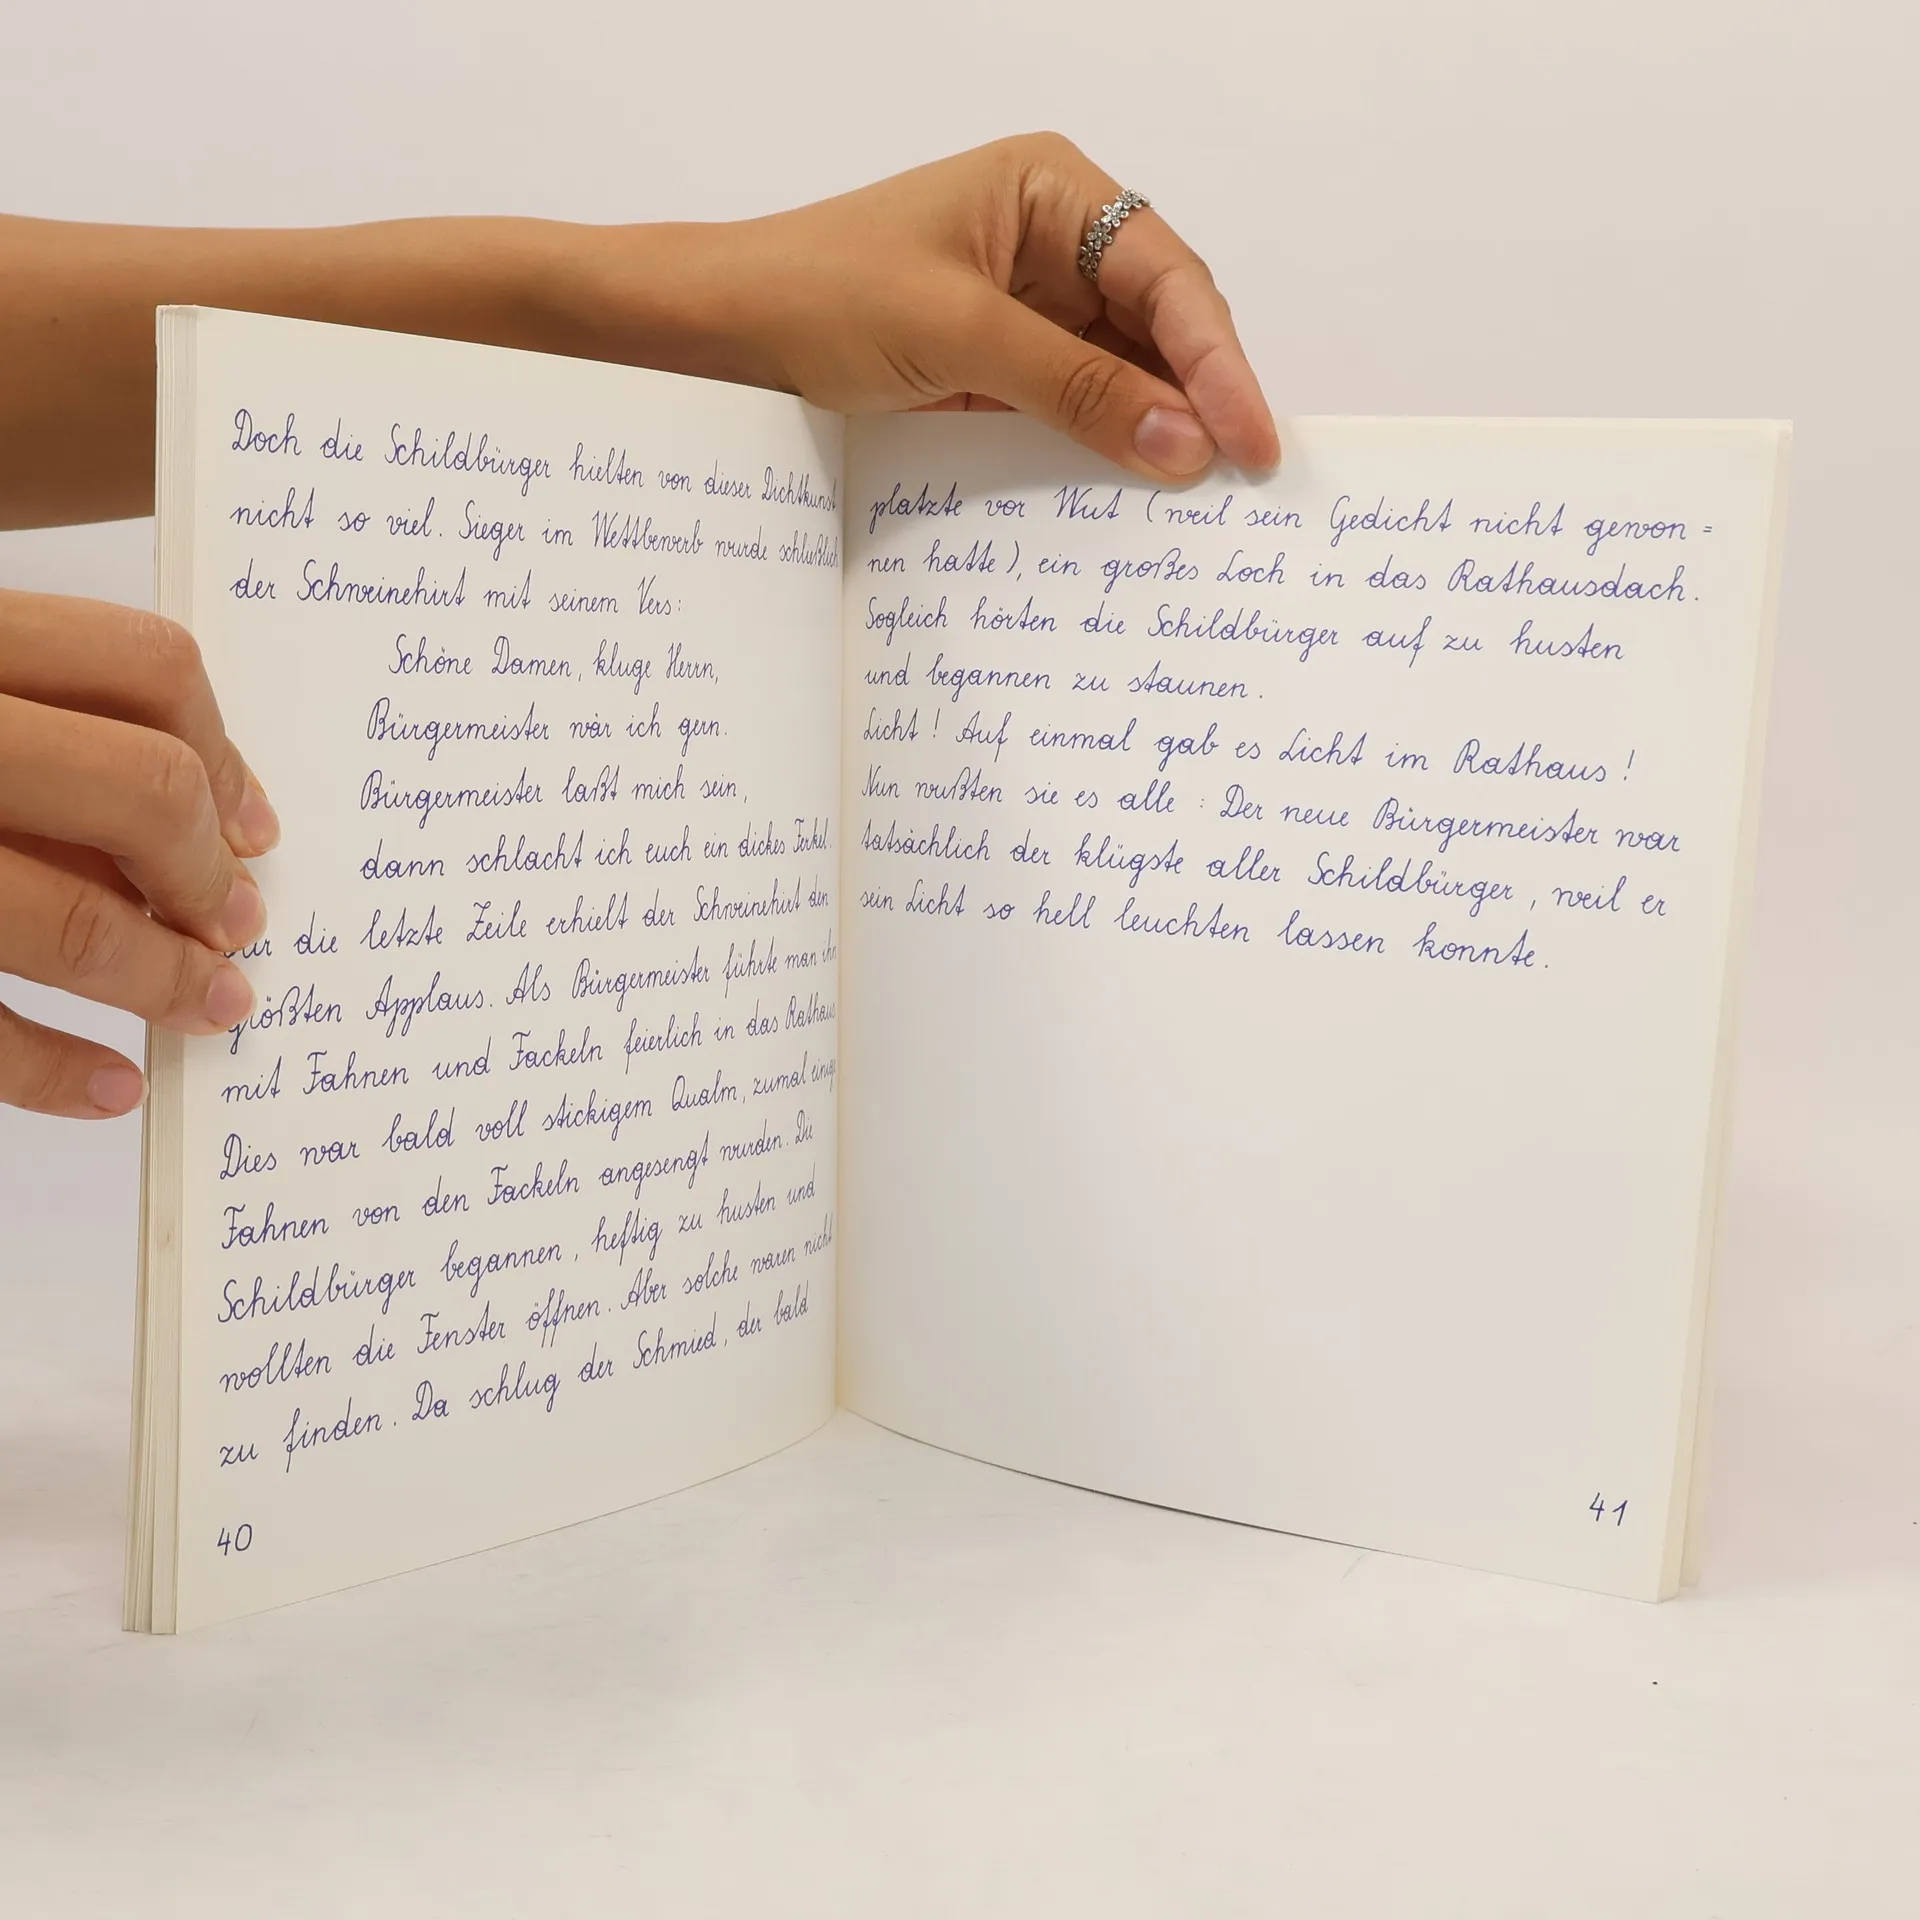 Doch die Schildbürger hielten von dieser Dichtkunst
nicht so viel. Sieger im Wettbewerb wurde schließlich
der Schweinehirt mit seinem Vers:
Schöne Damen, kluge Herrn,
Bürgermeister wär ich gern.
Bürgermeister laßt mich sein,
dann schlacht ich euch ein dickes Ferkel.
die letzte Zeile erhielt der Schweinehirt den
größten Applaus. Als Bürgermeister führte man ihn
mit Fahnen und Fackeln feierlich in das Rathaus
Dies war bald voll stickigem Qualm, zumal einige
Fahnen von den Fackeln angesengt wurden. Die
Schildbürger begannen, heftig zu husten und
wollten die Fenster öffnen. Aber solche waren nicht
zu finden. Da schlug der Schmied, der bald
40
platzte vor Wut (weil sein Gedicht nicht gewon=
nen hatte), ein großes Loch in das Rathausdach.
Sogleich hörten die Schildbürger auf zu husten
und begannen zu staunen.
Licht! Auf einmal gab es Licht im Rathaus!
Nun wußten sie es alle: Der neue Bürgermeister war
tatsächlich der klügste aller Schildbürger, weil er
sein Licht so hell leuchten lassen konnte.
41